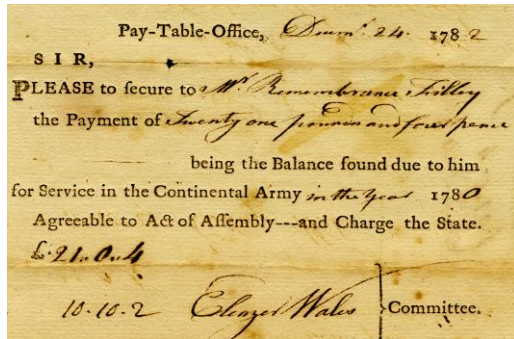 Pay-Table-Office, Decemr. 24. 1782
SIR,
PLEASE to ſecure to Mr Remembrance Filley
the Payment of Twenty one pounds and four pence
being the Balance found due to him
for Service in the Continental Army in the Year 1780
Agreeable to Act of Aſſembly---and Charge the State.
£.21.0.4
10.10.2 Eleazer Wales } Committee.